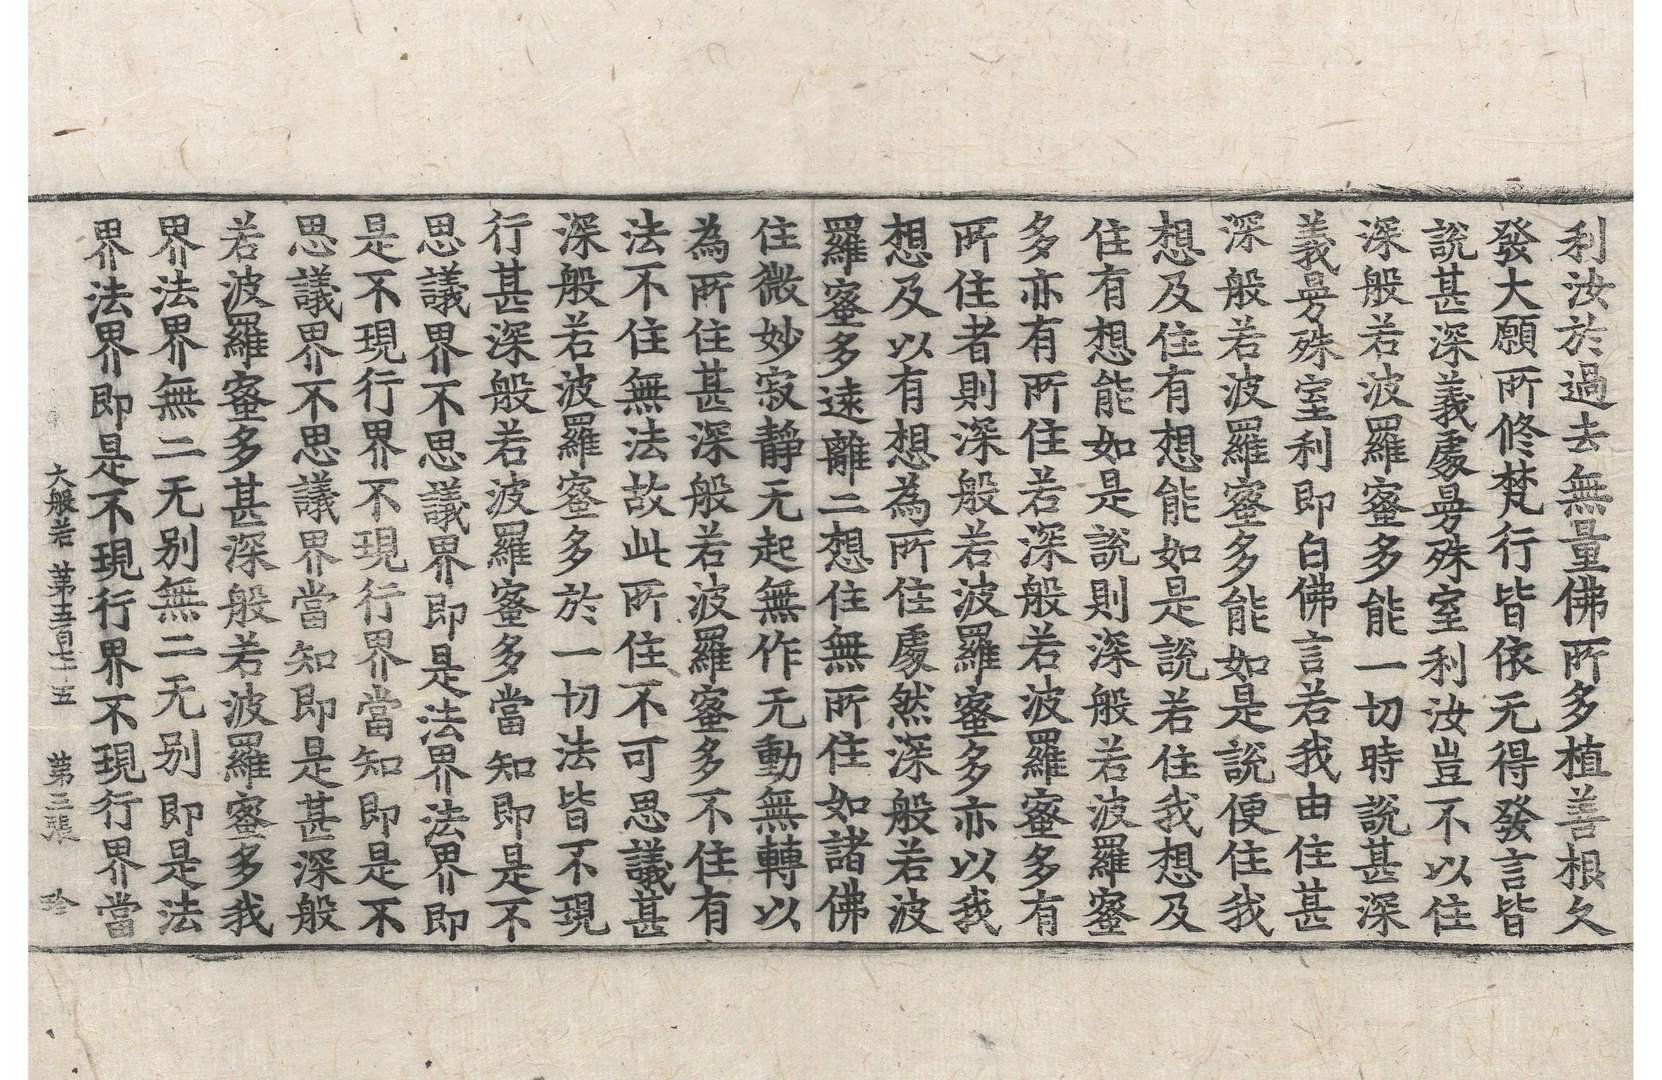 利汝於過去無量佛所多植善根久
發大願所修梵行皆依无得發言皆
說甚深義處曼殊室利汝豈不以住
深般若波羅蜜多能一切時說甚深
義曼殊室利即白佛言若我由住甚
深般若波羅蜜多能如是說便住我
想及住有想能如是說若住我想及
住有想能如是說則深般若波羅蜜
多亦有所住若深般若波羅蜜多有
所住者則深般若波羅蜜多亦以我
想及以有想為所住處然深般若波
羅蜜多遠離二想住無所住如諸佛
住微妙寂靜无起無作无動無轉以
為所住甚深般若波羅蜜多不住有
法不住無法故此所住不可思議甚
深般若波羅蜜多於一切法皆不現
行甚深般若波羅蜜多當知即是不
思議界不思議界即是法界法界即
是不現行界不現行界當知即是不
思議界不思議界當知即是甚深般
若波羅蜜多甚深般若波羅蜜多我
界法界無二无別無二无別即是法
界法界即是不現行界不現行界當
大般若 第五百七十五 第三張 珍